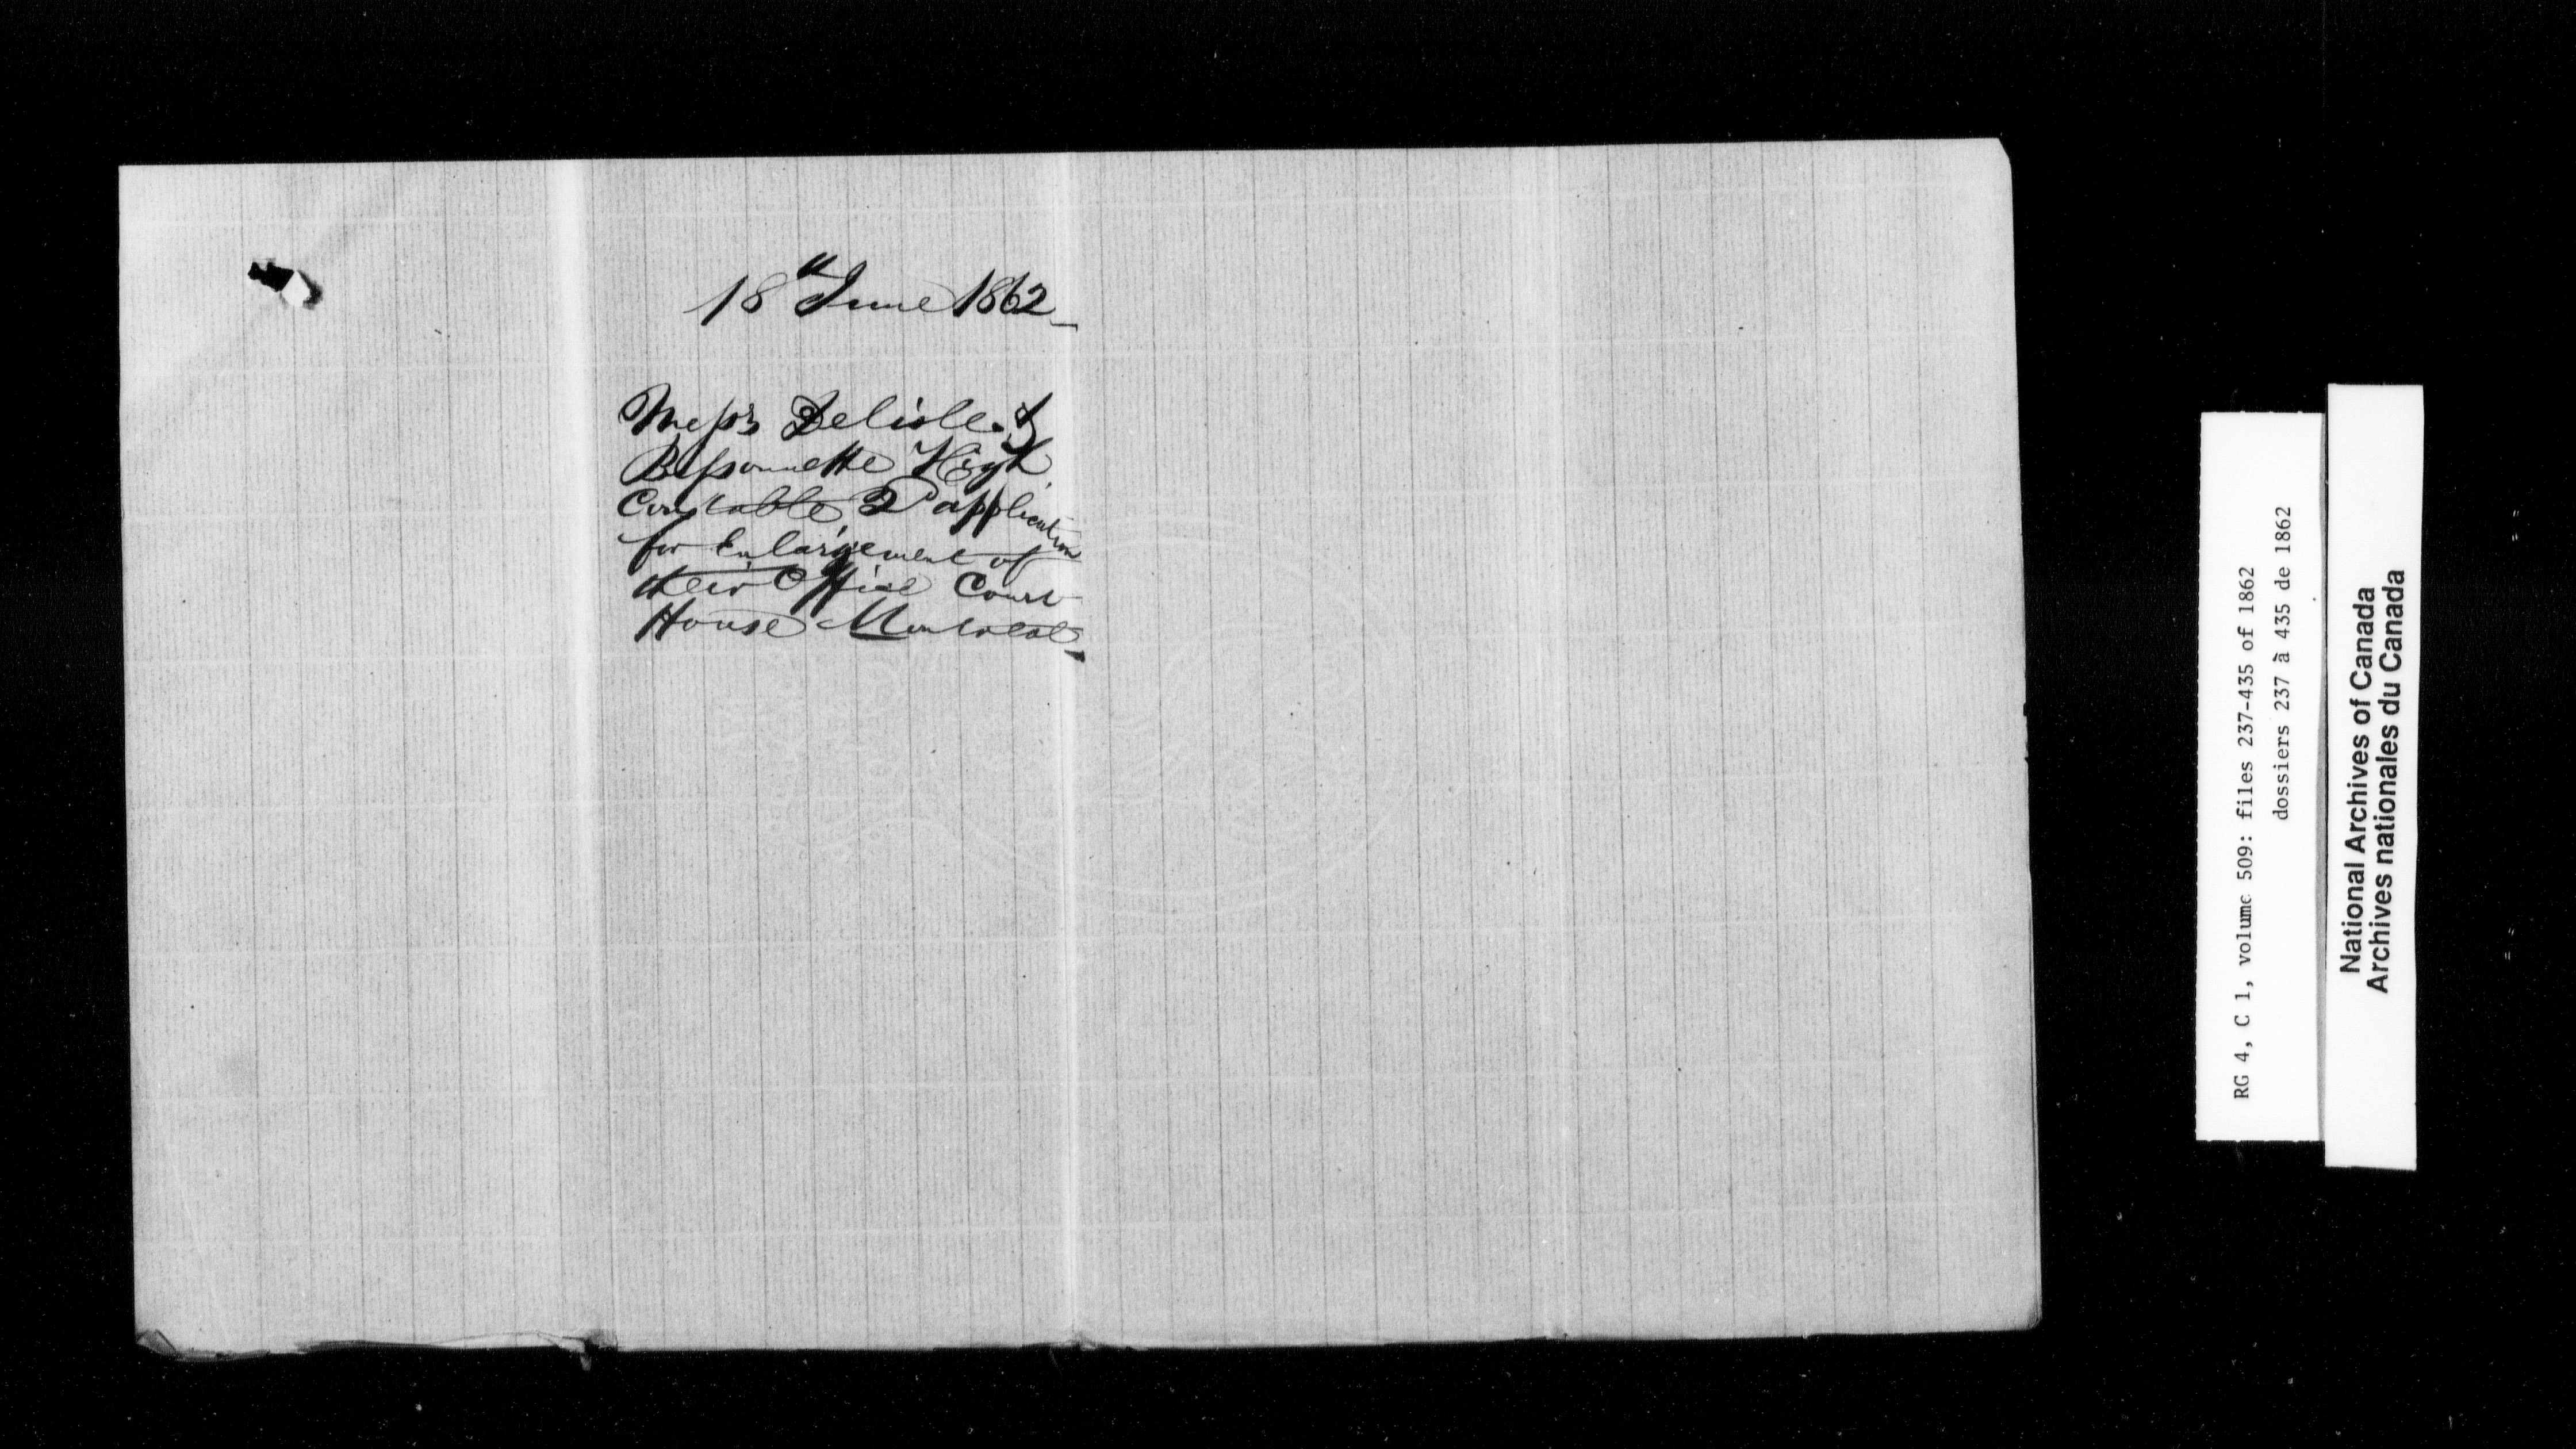 18" June 1862_
Messrs Delisle &
Bissonnette High
Constable application
for Enlargement of
their Office Court
House Montreal
RG 4, C 1, volume 509: files 237-435 of 1862
dossiers 237 à 435 de 1862
National Archives of Canada
Archives nationales du Canada